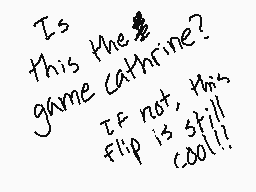 Is
this the
game cathrine?
If not, this
flip is still
cool!!